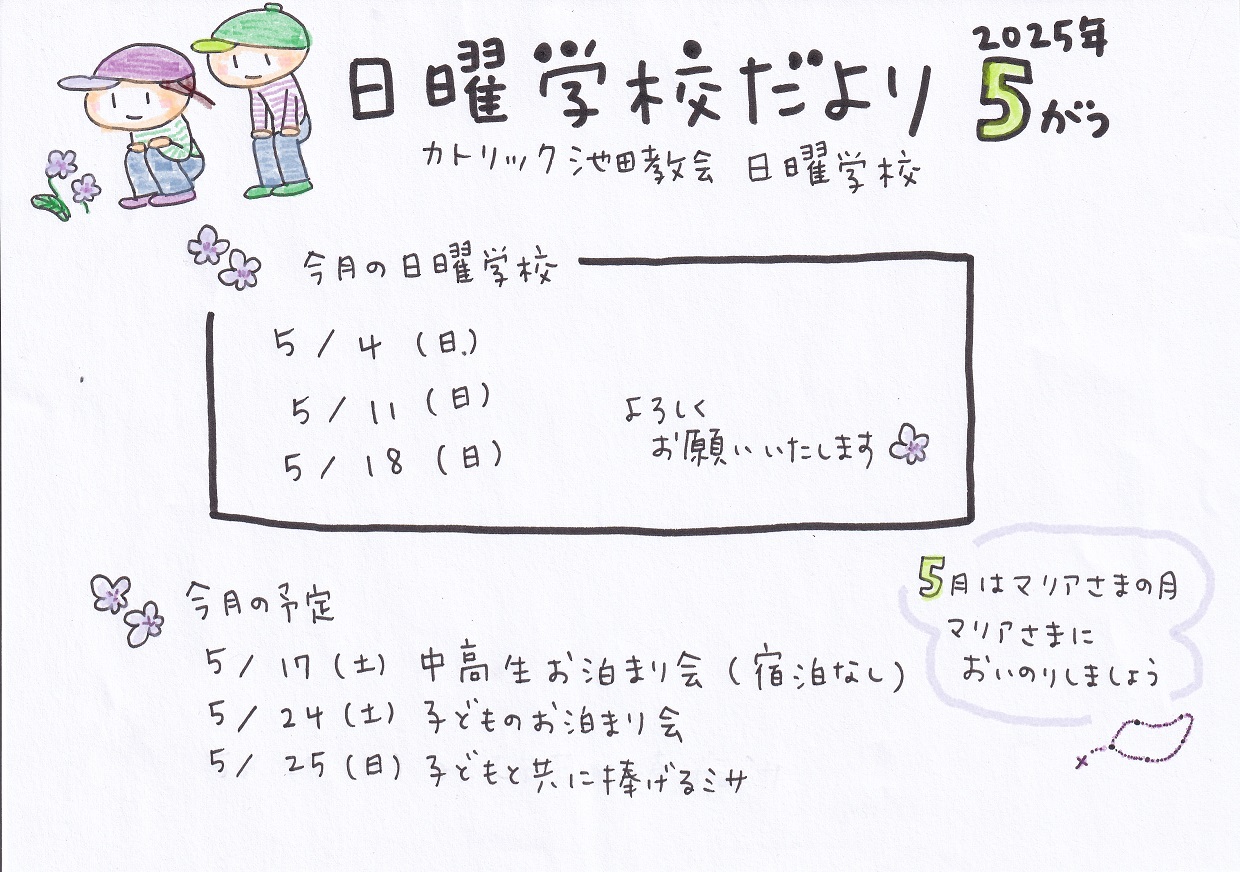 日曜学校だより
2025年
5がつ
カトリック池田教会 日曜学校
今月の日曜学校
5/4(日)
5/11(日)
5/18(日)
よろしく
お願いいたします
今月の予定
5/17(土) 中高生お泊まり会(宿泊なし)
5/24(土) 子どものお泊まり会
5/25(日) 子どもと共に捧げるミサ
5月はマリアさまの月
マリアさまに
おいのりしましょう